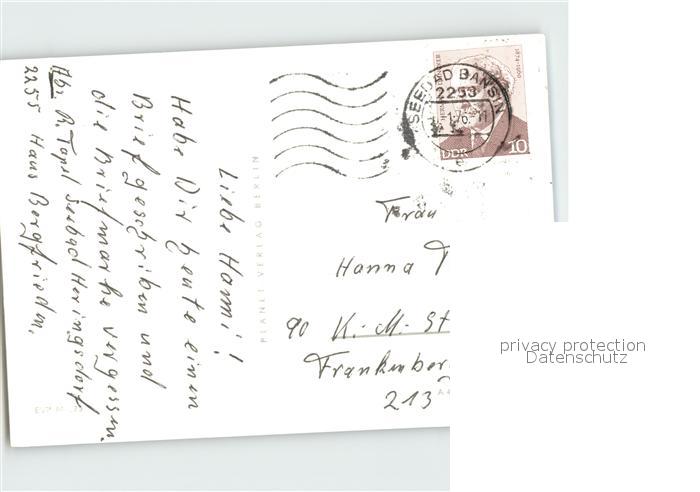 Liebe Hanni!
Habe Dir heute einen
Brief geschrieben und
die Briefmarke vergessen.
Abs. B. Topel Seebad Heringsdorf
2255 Haus Bergfrieden.
PLANET VERLAG BERLIN
SEEBAD BANSIN
2253
76
1874-1960
DDR
10
Frau
Hanna T
90 K.-M.-St
Frankenber
213
privacy protection
Datenschutz